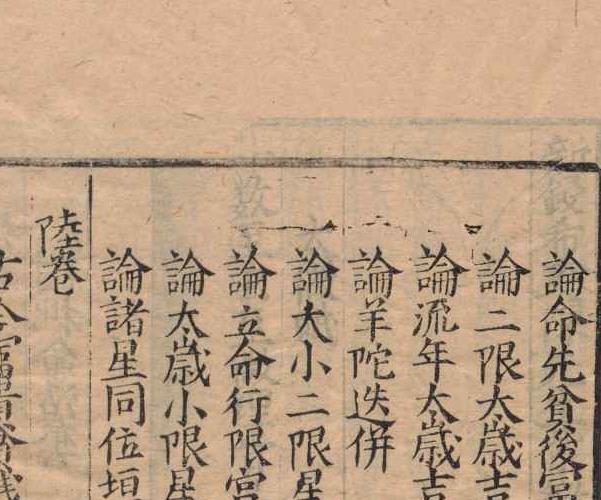 論命先貧後富
論二限太歲吉
論流年太歲吉
論羊陀迭併
論大小二限星
論立命行限宮
論太歲小限星
論諸星同位垣
陸卷
古今富貴貧賤